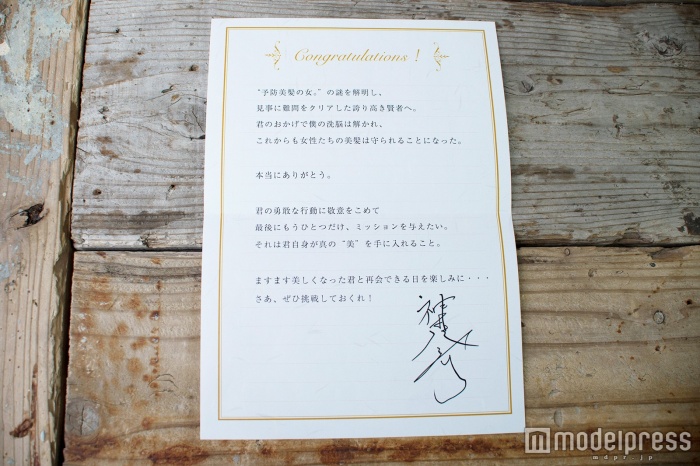 Congratulations !
“予防美髪の女。”の謎を解明し、
見事に難問をクリアした誇り高き賢者へ。
君のおかげで僕の洗脳は解かれ、
これからも女性たちの美髪は守られることになった。
本当にありがとう。
君の勇敢な行動に敬意をこめて
最後にもうひとつだけ、ミッションを与えたい。
それは君自身が真の“美”を手に入れること。
ますます美しくなった君と再会できる日を楽しみに・・・
さあ、ぜひ挑戦しておくれ！
modelpress
mdpr.jp